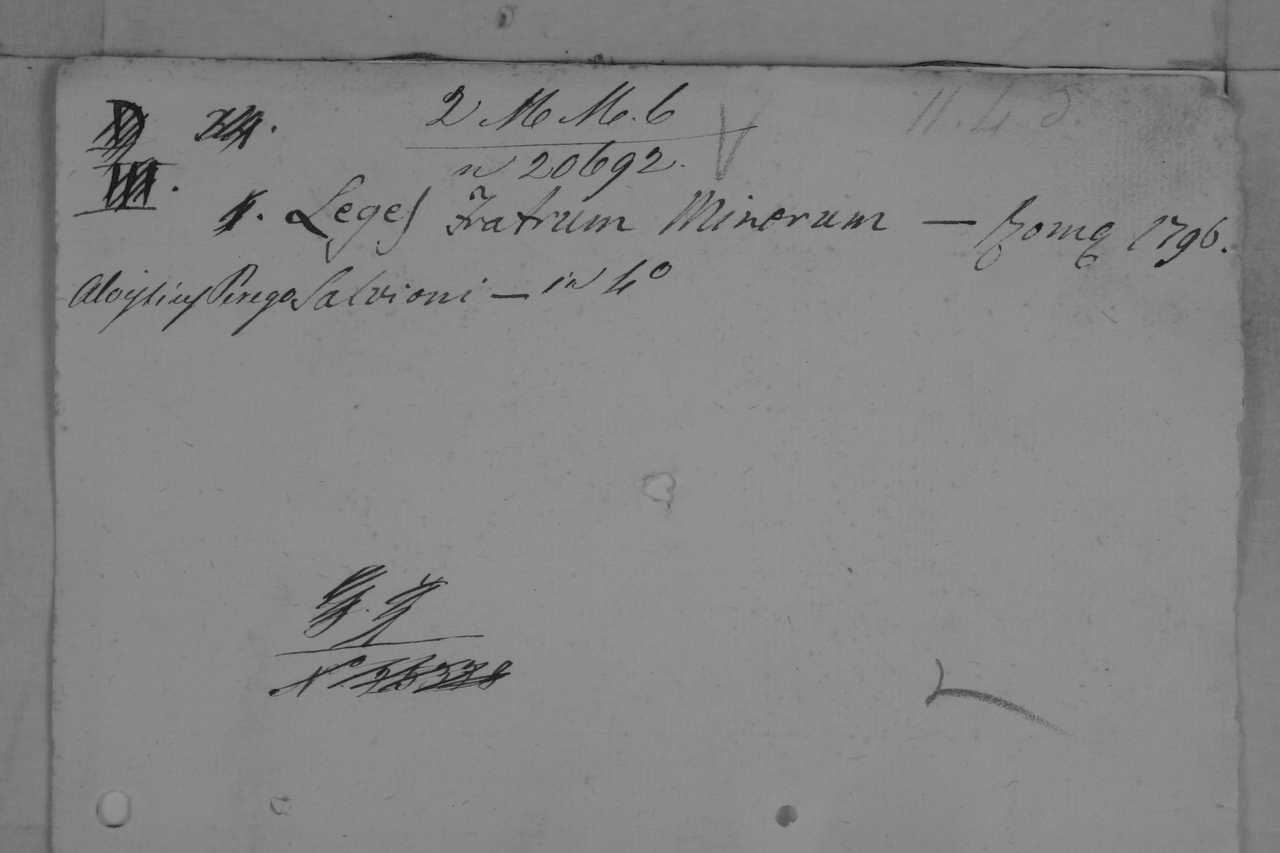 2 M M. 6
11. 4 d.
n 20692.
1. Leges Fratrum Minorum — Romę 1796.
Aloysius Perego Salvioni — in 4º